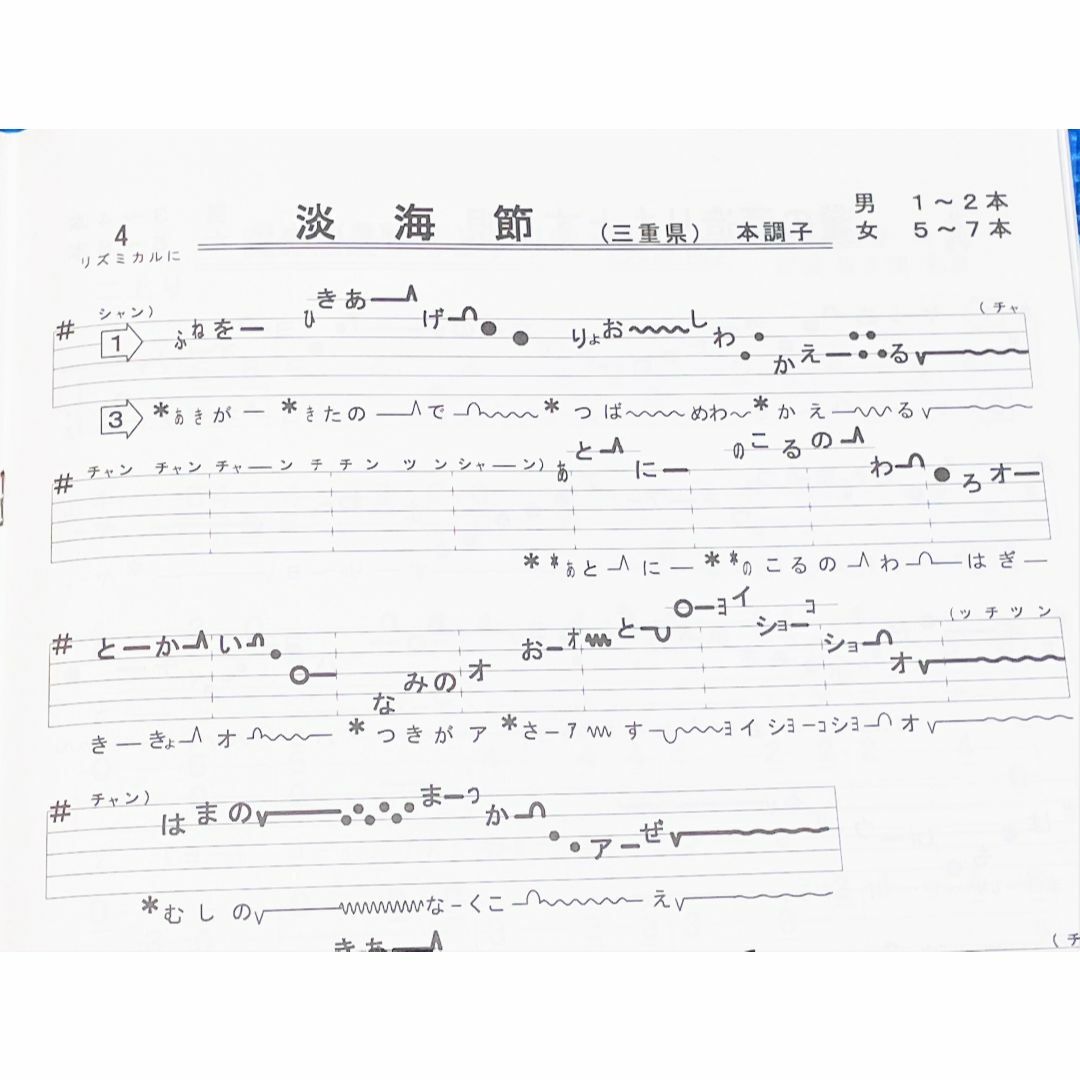 4 淡海節 (三重県) 本調子 男 1～2本
リズミカルに 女 5～7本
シャン) (チャ
# 1 ふねをー ひきあーげーりょお〜〜しわかえーる
3 *あきがー *きたのーで〜〜* つば〜〜めわ〜*かえー〜〜る
# チャン チャン チャーン チ チン ツ ン シャーン) あとーにー のこるのーわーろオー
* *あとーにー * *のこるのーわーはぎー
# とーかーいー なみのオ おーオとーヨイショーコショーオ (ッチツン
きーきょーオ〜〜 *つきがア *さーアすー〜〜ヨイショーコショーオ
# チャン) はまのーまーつかーアーぜ
*むしのー〜〜なーくこー〜〜え
きあー (チ